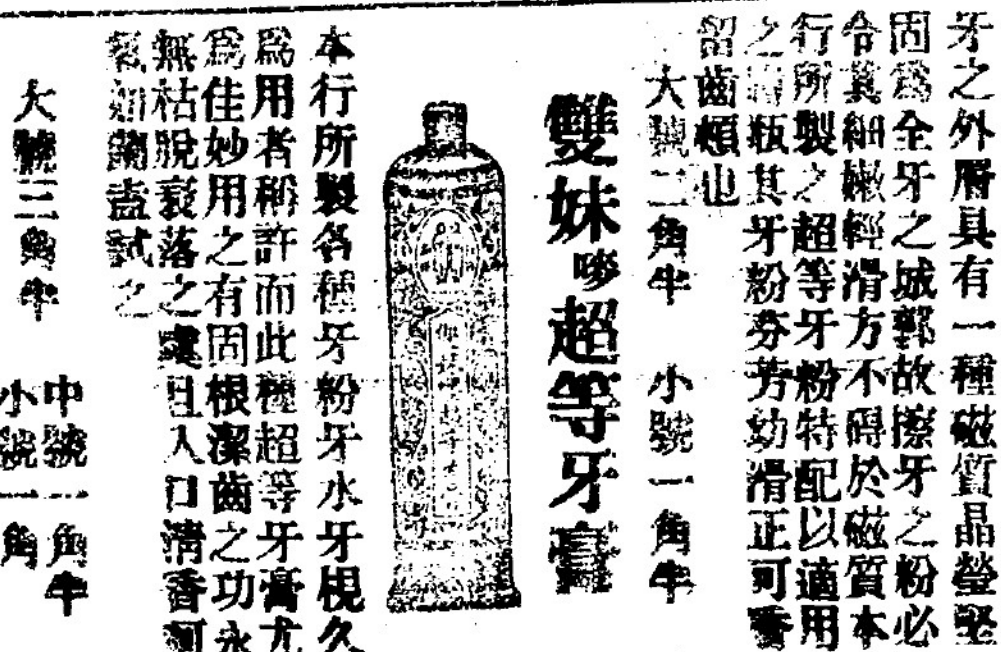 牙之外層具有一種磁質晶瑩堅
固為全牙之城郭故擦牙之粉必
含其細嫩輕滑方不碍於磁質本
行所製之超等牙粉特配以適用
之瓶其牙粉芬芳幼滑正可香
留齒頰也
大號二角半 小號一角半
雙妹嘜超等牙膏
本行所製各種牙粉牙水牙梘久
為用者稱許而此種超等牙膏尤
為佳妙用之有固根潔齒之功永
無枯脫衰落之處且入口清香
氣如蘭盍試之
大號三角半
中號一角半
小號一角